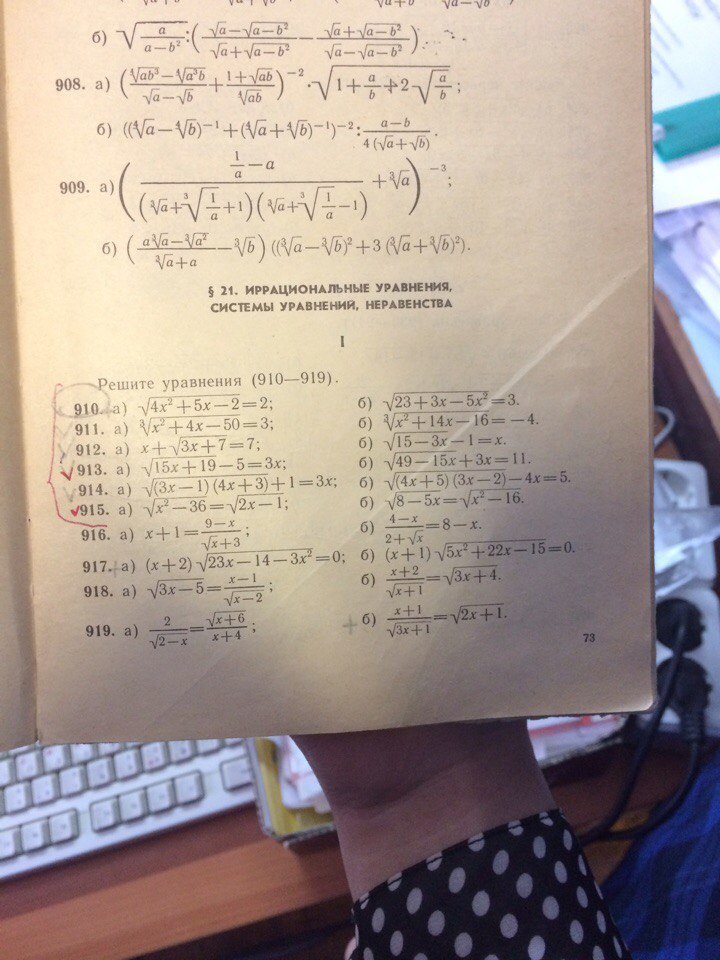 б) √(a/(a−b²)) : ((√a−√(a−b²))/(√a+√(a−b²)) − (√a+√(a−b²))/(√a−√(a−b²))).
908. а) ((⁴√(ab³)−⁴√(a³b))/(√a−√b) + (1+√(ab))/⁴√(ab))⁻² · √(1+a/b+2√(a/b));
б) ((⁴√a−⁴√b)⁻¹+(⁴√a+⁴√b)⁻¹)⁻² : (a−b)/(4(√a+√b)).
909. а) ((1/a−a)/((³√a+³√(1/a)+1)(³√a+³√(1/a)−1)) + ³√a)⁻³;
б) ((a³√a−³√(a²))/(³√a+a) − ³√b)((³√a−³√b)²+3(³√a+³√b)²).
§ 21. ИРРАЦИОНАЛЬНЫЕ УРАВНЕНИЯ,
СИСТЕМЫ УРАВНЕНИЙ, НЕРАВЕНСТВА
I
Решите уравнения (910—919).
910. а) √(4x²+5x−2)=2; б) √(23+3x−5x²)=3.
911. а) ³√(x²+4x−50)=3; б) ³√(x²+14x−16)=−4.
912. а) x+√(3x+7)=7; б) √(15−3x)−1=x.
913. а) √(15x+19)−5=3x; б) √(49−15x)+3x=11.
914. а) √((3x−1)(4x+3))+1=3x; б) √((4x+5)(3x−2))−4x=5.
915. а) √(x²−36)=√(2x−1); б) √(8−5x)=√(x²−16).
916. а) x+1=(9−x)/√(x+3); б) (4−x)/(2+√x)=8−x.
917. а) (x+2)√(23x−14−3x²)=0; б) (x+1)√(5x²+22x−15)=0.
918. а) √(3x−5)=(x−1)/√(x−2); б) (x+2)/√(x+1)=√(3x+4).
919. а) 2/√(2−x)=√(x+6)/(x+4); б) (x+1)/√(3x+1)=√(2x+1).
73